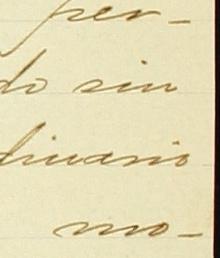 per-
do sin
dinario
mo-